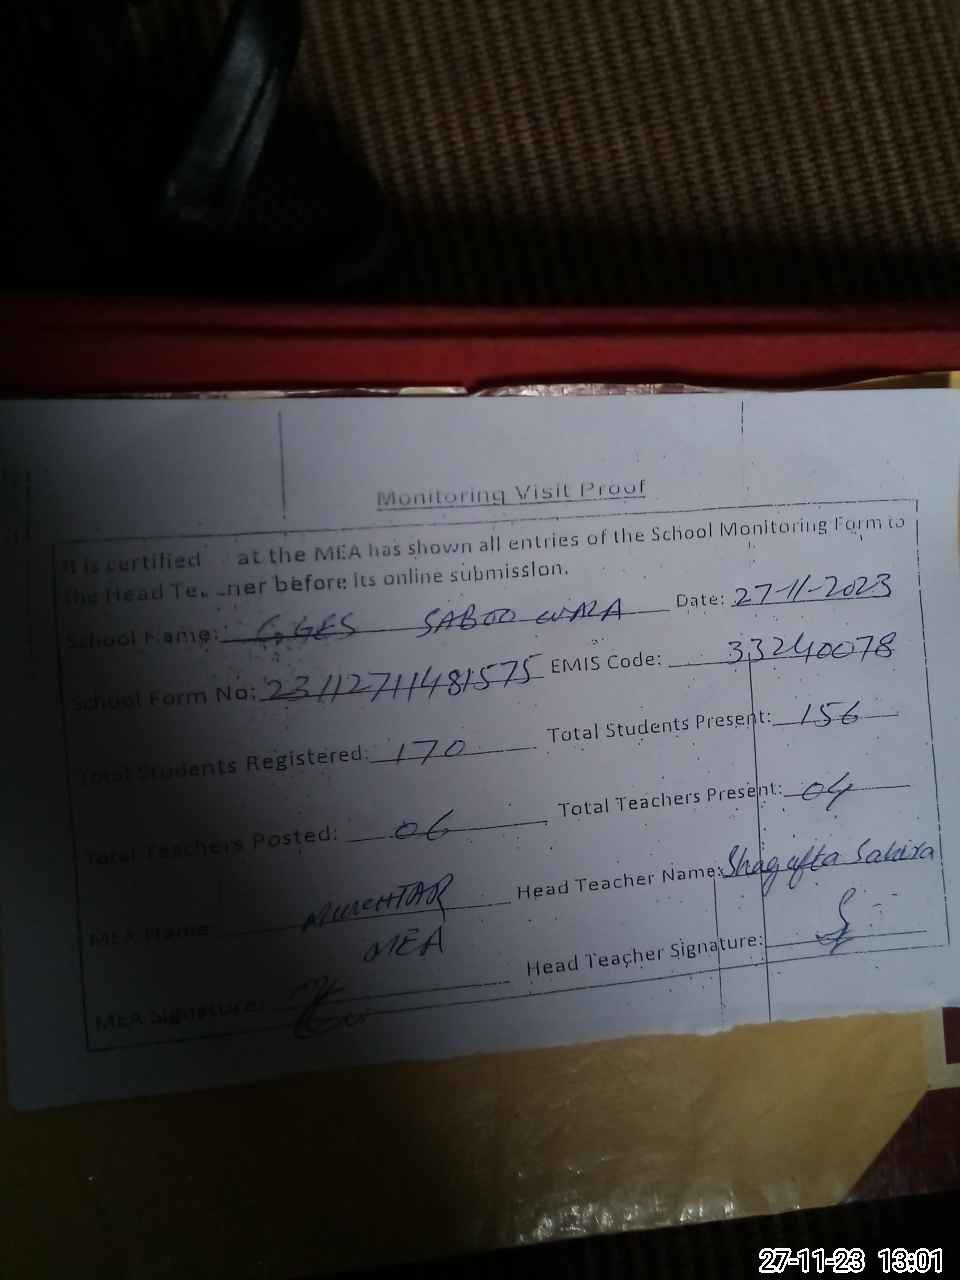 Monitoring Visit Proof
It is certified at the MEA has shown all entries of the School Monitoring Form to
the Head Te ner before its online submission.
School Name: GGES SABOO WALA Date: 27-11-2023
School Form No: 231127111481575 EMIS Code: 33240078
Total Students Registered: 170 Total Students Present: 156
Total Teachers Posted: 06 Total Teachers Present: 04
MEA Name: Head Teacher Name: Shagufta Sabira
MEA
MEA Signature: Head Teacher Signature:
27-11-23 13:01